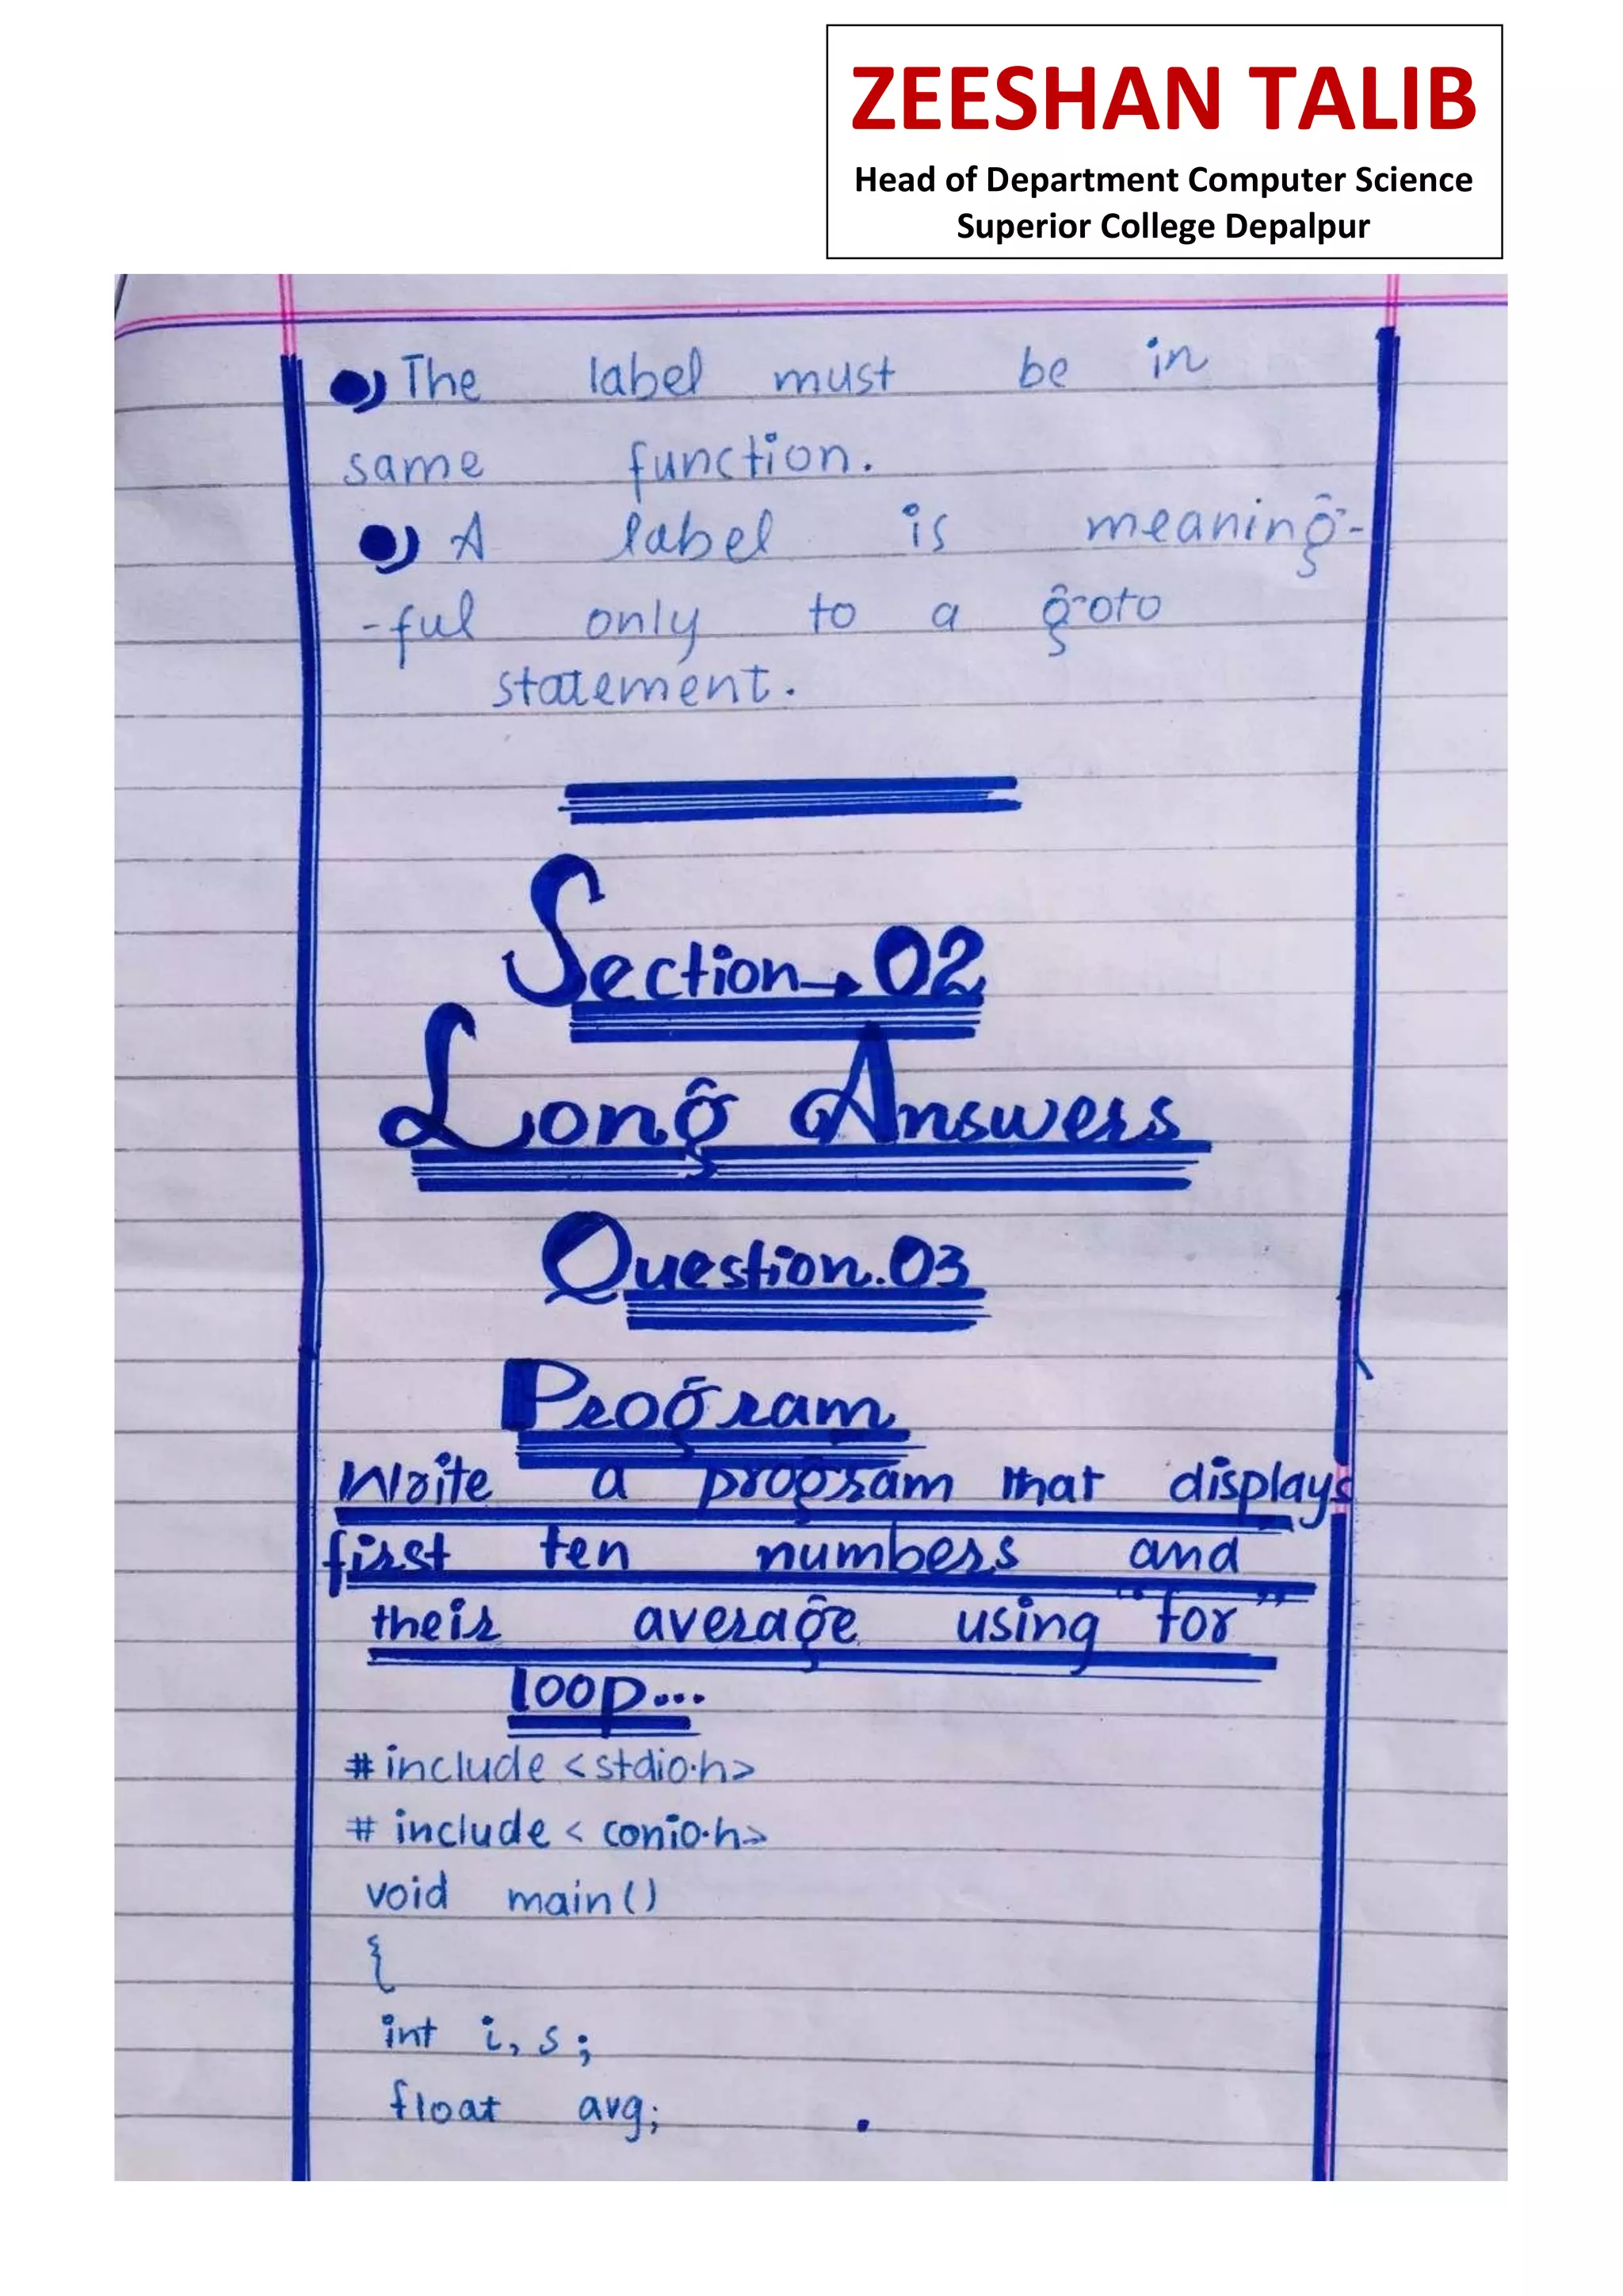 ZEESHAN TALIB
Head of Department Computer Science
Superior College Depalpur
●) The label must be in
same function.
●) A label is meaning-
-ful only to a goto
statement.
Section→02
Long Answers
Question.03
Program
Write a program that displays
first ten numbers and
their average using "for"
loop...
#include <stdio.h>
# include < conio.h>
void main()
{
int i, s;
float avg;